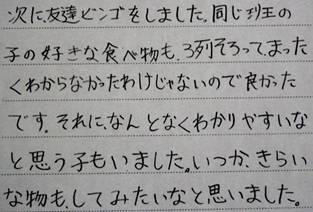 次に、友達ビンゴをしました。同じ班の
子の好きな食べ物も、3列そろって、まった
くわからなかったわけじゃないので良かった
です。それに、なんとなくわかりやすいな
と思う子もいました。いつか、きらい
な物も、してみたいなと思いました。